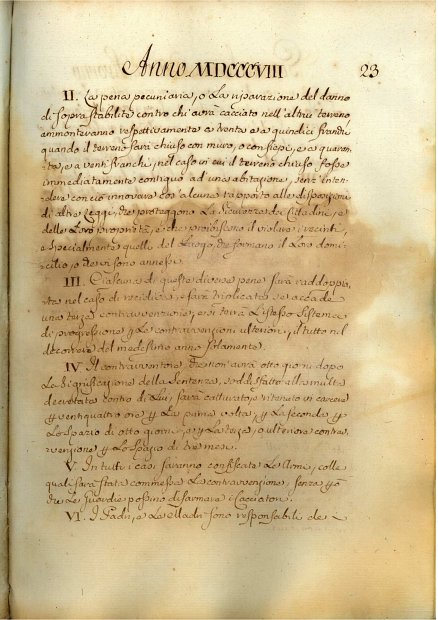 Anno MDCCCVIII 23
II. La pena pecuniaria, o La riparazione del danno
di sopra stabilite contro chi avrà cacciato nell'altrui terreno
ammonteranno respattivamente a trenta e a quindici franchi
quando il terreno sarà chiuso con muro, o con siepi, e a quaran-
ta, e a venti franchi, nel caso in cui il terreno chiuso fosse
immediatamente contiguo ad una abitazione, senz'inten-
dere con ciò innovare cos'alcuna rapporto alle disposizioni
di altre Leggi, che proteggono La sicurezza de Cittadini, e
delle Loro proprietà, e che proibiscono il violare i recinti,
e specialmente quelli de Luoghi, che formano il Loro domi-
cilio, o che vi sono annessi.
III. Ciascuna di queste diverse pene sarà raddoppia-
ta nel caso di recidiva, e sarà triplicata se accade
una terza contravvenzione, e si terrà L'istesso sistema
di progressione p Le contravvenzioni ulteriori, il tutto nel
decorso del medesimo anno solamente.
IV Il contravventore che non avrà otto giorni dopo
La significazione della Sentenza, soddisfatto alla multa
decretata contro di Lui, sarà catturato, e ritenuto in carcere
p ventiquattro ore p La prima volta, p La seconda p
Lo spazio di otto giorni, e p La terza, o ulteriore contrav-
venzione p Lo spazio di tre mesi.
V. In tutti i casi saranno confiscate Le Armi, colle
quali sarà stata commessa La contravvenzione, senza però
che Le Guardie possino disarmare i Cacciatori.
VI. I Padri, e Le Madri sono responsabili de